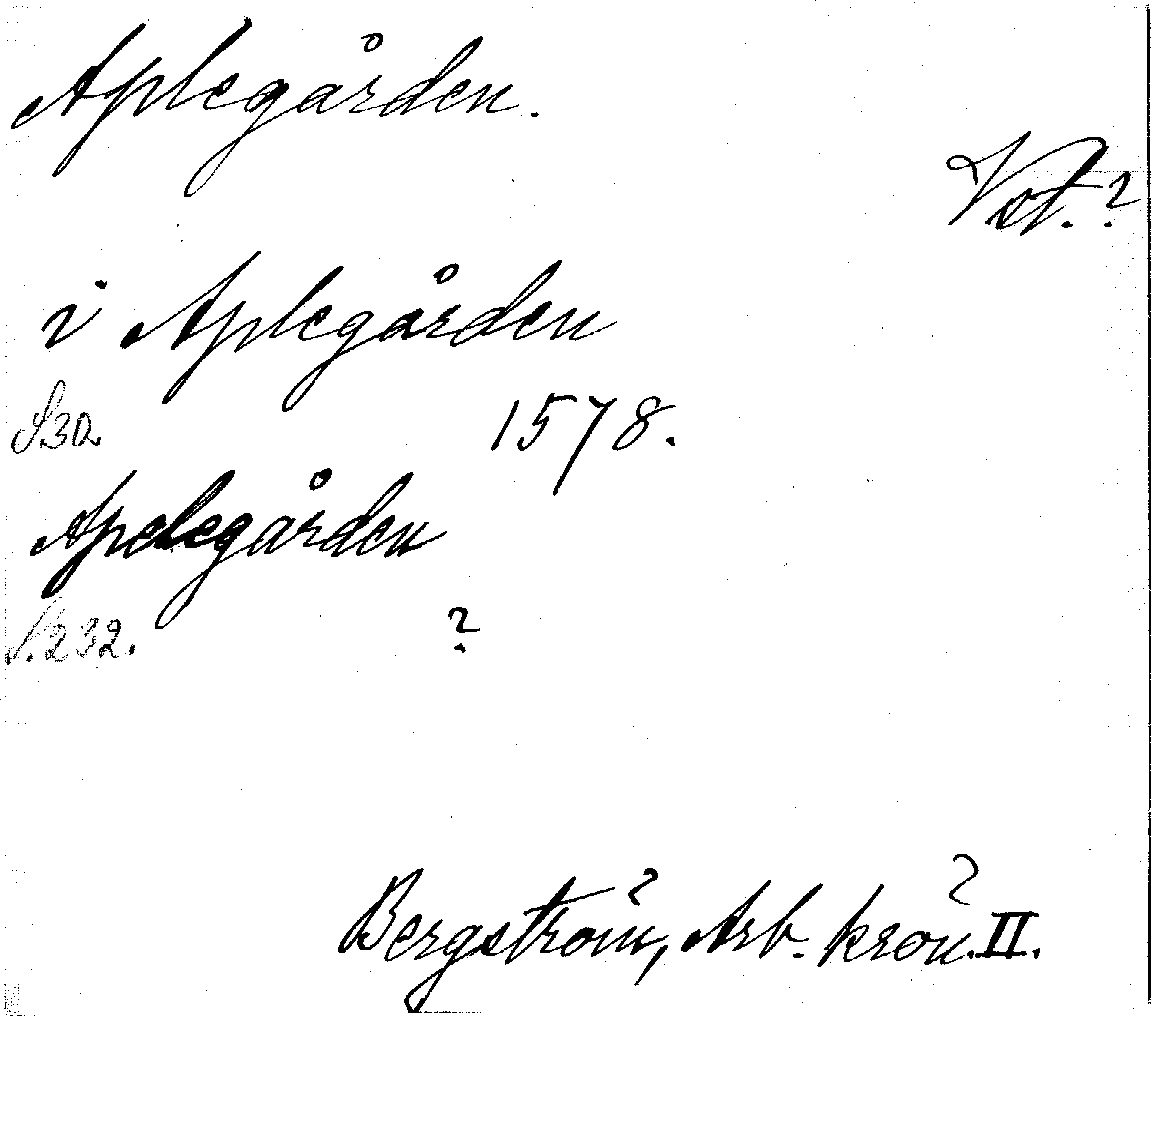 Aplegården.
Vst.?
i Aplegården
S.30. 1578.
Apelegården
S.232. ?
Bergström, Arb. krön. II.